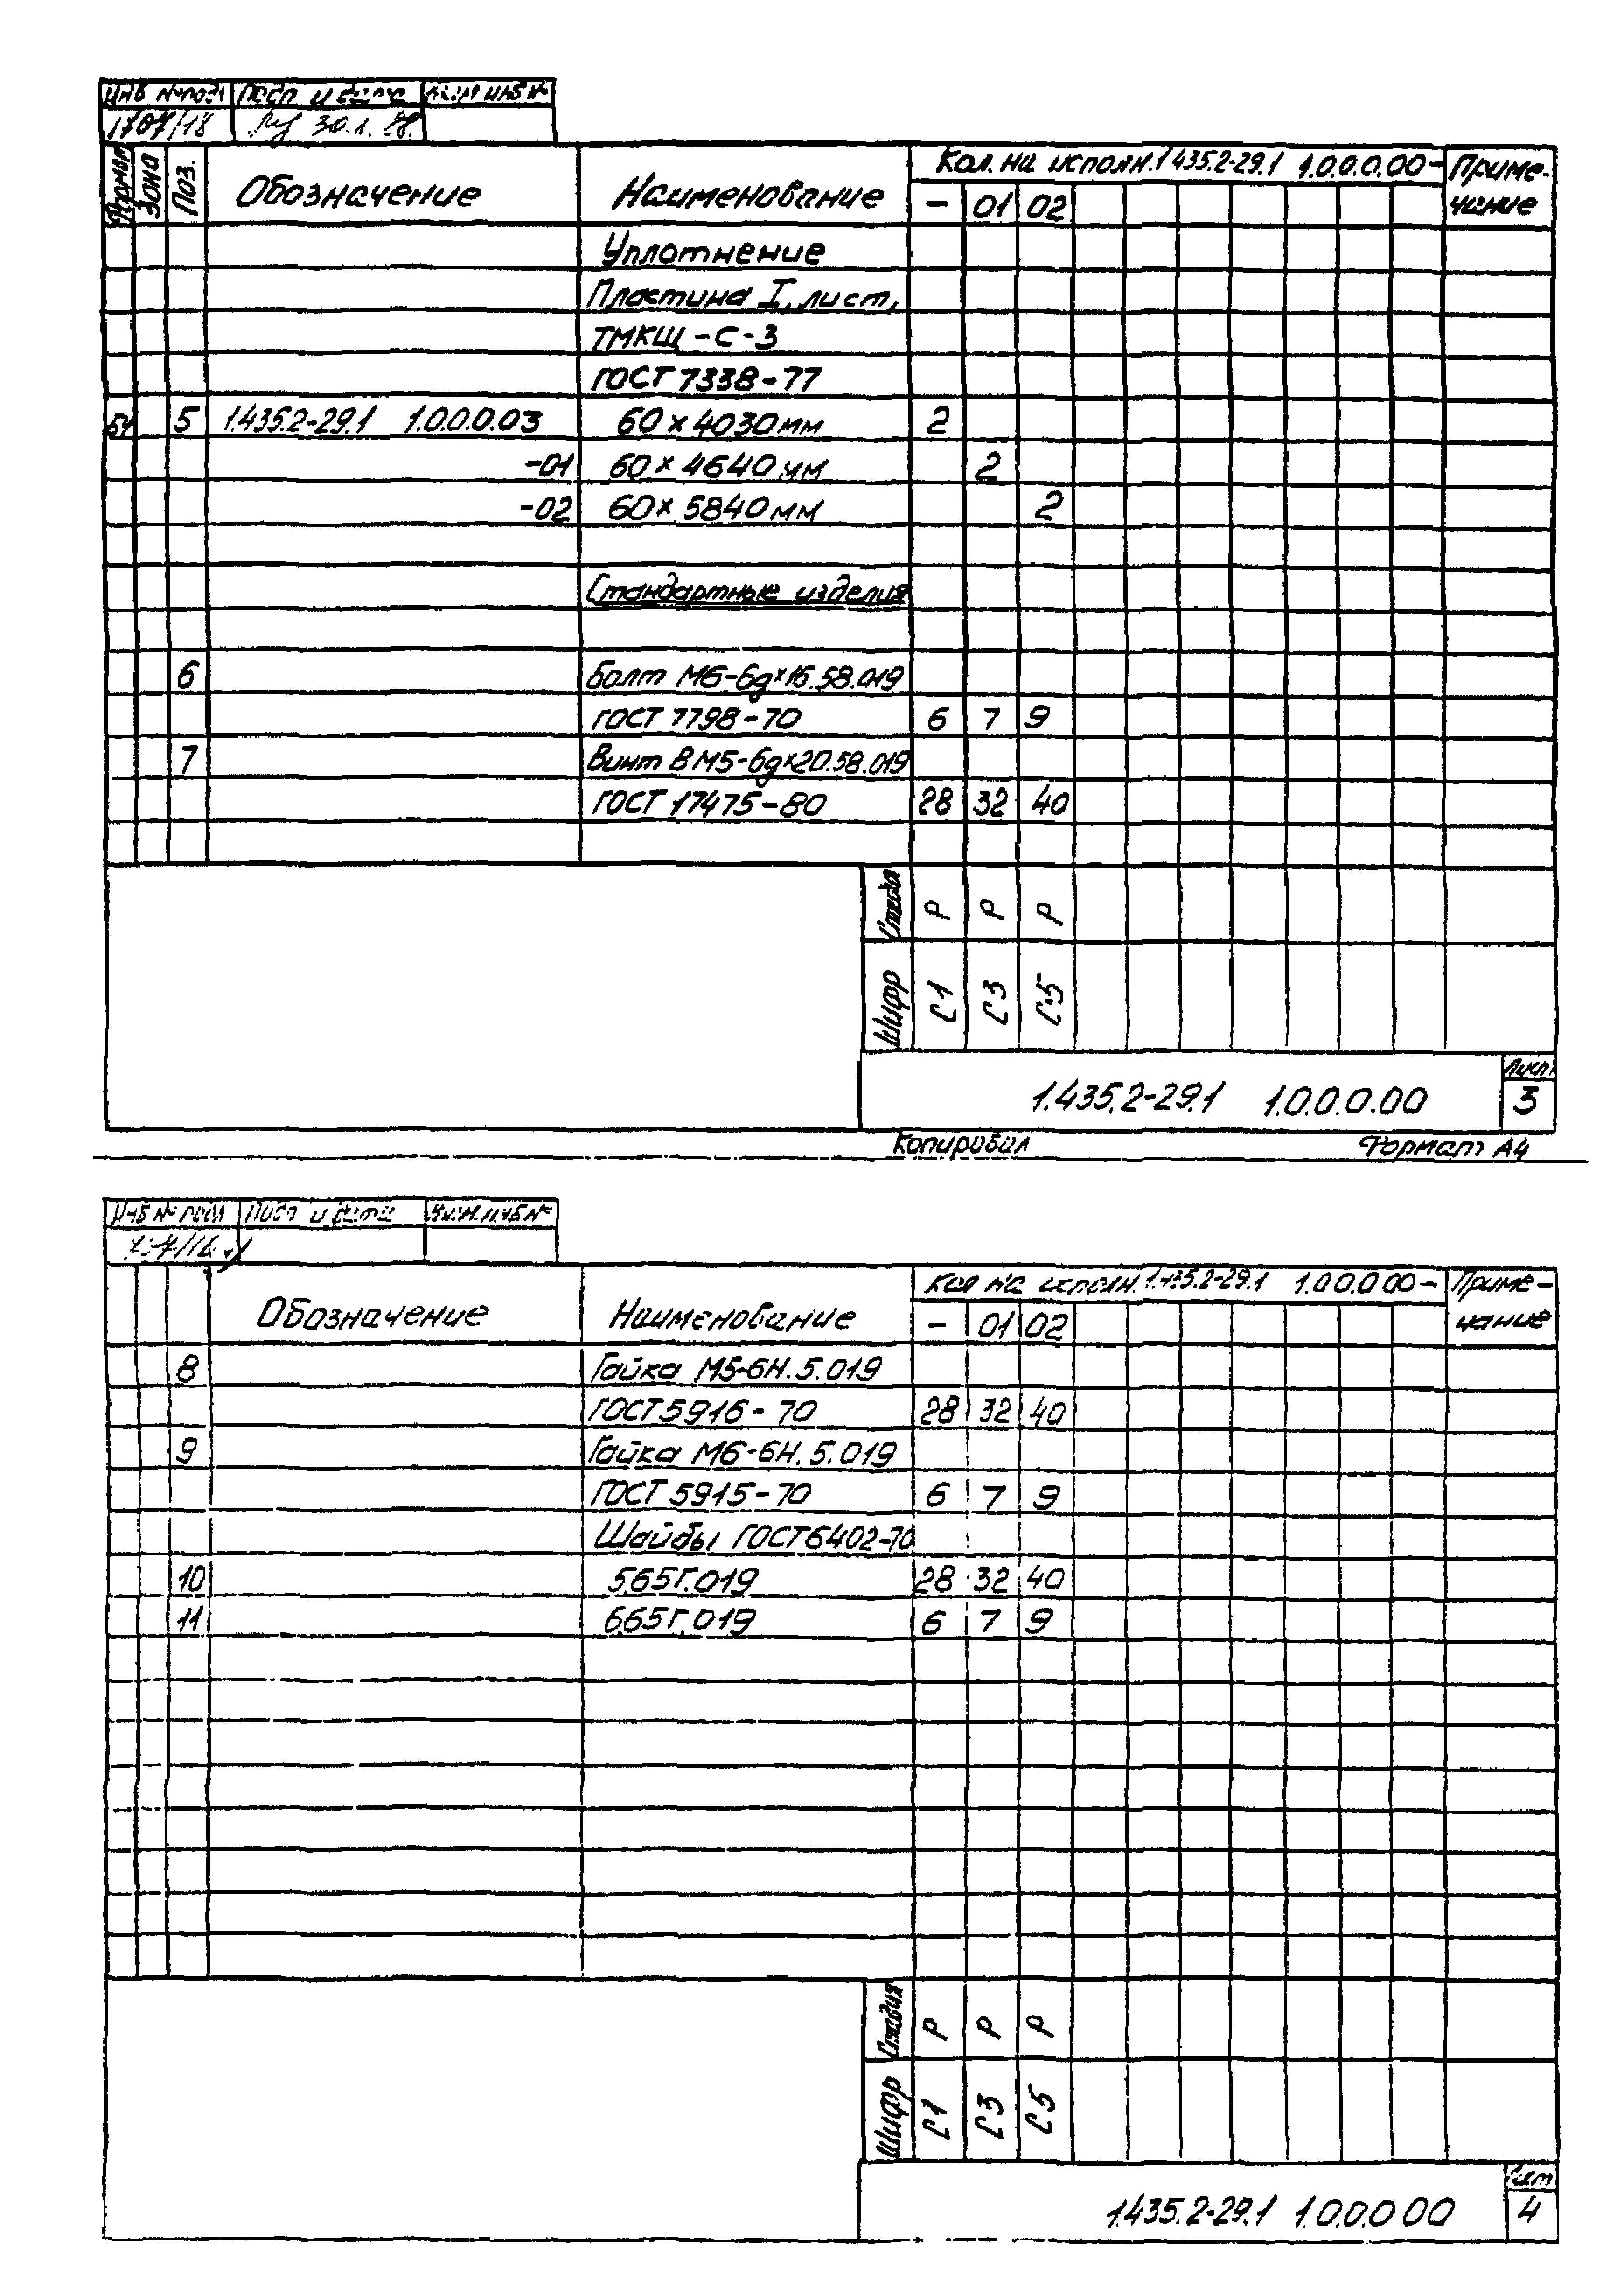 Инв № подл Подп. и дата Взам инв №
1707/18 30.1.88.
Формат Зона Поз. Обозначение Наименование Кол. на исполн. 1.435.2-29.1 1.0.0.0.00- Приме-
чание
- 01 02
Уплотнение
Пластина I, лист,
ТМКЩ-С-3
ГОСТ 7338-77
БЧ 5 1.435.2-29.1 1.0.0.0.03 60×4030мм 2
-01 60×4640мм 2
-02 60×5840мм 2
Стандартные изделия
6 Болт М6-6g×16.58.019
ГОСТ 7798-70 6 7 9
7 Винт В М5-6g×20.58.019
ГОСТ 17475-80 28 32 40
Стадия Р Р Р
Шифр С1 С3 С5
1.435.2-29.1 1.0.0.0.00 Лист 3
Копировал Формат А4
Инв № подл Подп и дата Взам.инв №
Обозначение Наименование Кол на исполн. 1.435.2-29.1 1.0.0.0.00- Приме-
чание
- 01 02
8 Гайка М5-6Н.5.019
ГОСТ 5916-70 28 32 40
9 Гайка М6-6Н.5.019
ГОСТ 5915-70 6 7 9
Шайбы ГОСТ 6402-70
10 5.65Г.019 28 32 40
11 6.65Г.019 6 7 9
Стадия Р Р Р
Шифр С1 С3 С5
1.435.2-29.1 1.0.0.0.00 Лист 4